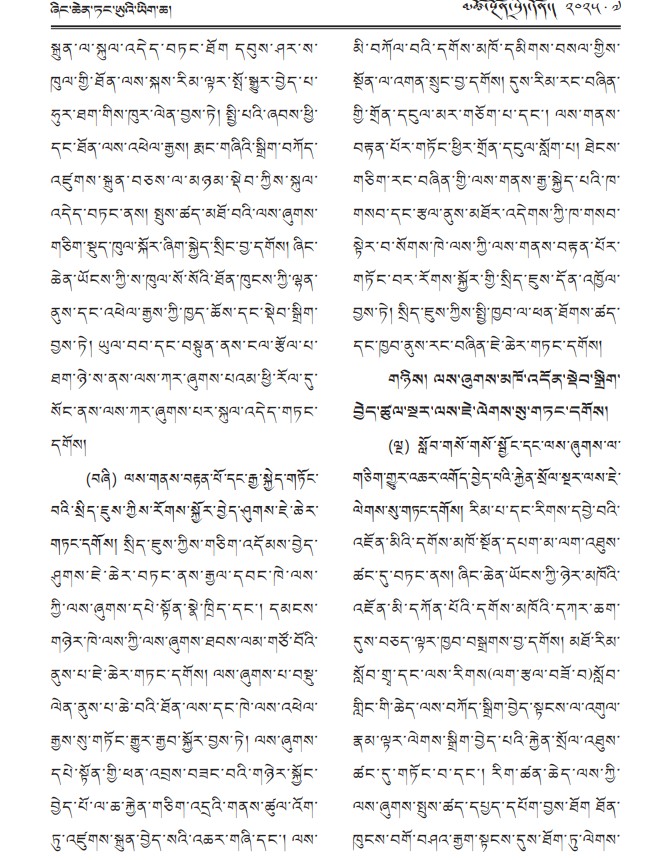 ཞིང་ཆེན་ཏང་ཨུའི་ཡིག་ཆ།
༢༠༢༥ · ༧
སྒྲུན་ལ་སྐུལ་འདེད་བཏང་ཐོག དབུས་ཤར་ས་
ཁུལ་གྱི་ཐོན་ལས་སྐས་རིམ་ལྟར་སྤོ་སྒྱུར་བྱེད་པ་
ཧུར་ཐག་གིས་ཁུར་ལེན་བྱས་ཏེ། སྤྱི་པའི་ཞབས་ཕྱི་
དང་ཐོན་ལས་འཕེལ་རྒྱས། རྨང་གཞིའི་སྒྲིག་བཀོད་
འཛུགས་སྐྲུན་བཅས་ལ་མཉམ་སྡེབ་ཀྱིས་སྐུལ་
འདེད་བཏང་ནས། སྤུས་ཚད་མཐོ་བའི་ལས་ཞུགས་
གཅིག་སྡུད་ཁུལ་སྐོར་ཞིག་སྐྱེད་སྲིང་བྱ་དགོས། ཞིང་
ཆེན་ཡོངས་ཀྱི་ས་ཁུལ་སོ་སོའི་ཐོན་ཁུངས་ཀྱི་ལྷན་
ནུས་དང་འཕེལ་རྒྱས་ཀྱི་ཁྱད་ཆོས་དང་སྡེབ་སྒྲིག་
བྱས་ཏེ། ཡུལ་བབ་དང་བསྟུན་ནས་ངལ་རྩོལ་པ་
ཐག་ཉེ་ས་ནས་ལས་ཀར་ཞུགས་པའམ་ཕྱི་རོལ་དུ་
སོང་ནས་ལས་ཀར་ཞུགས་པར་སྐུལ་འདེད་གཏང་
དགོས།
(བཞི) ལས་གནས་བརྟན་པོ་དང་རྒྱ་སྐྱེད་གཏོང་
བའི་སྲིད་ཇུས་ཀྱིས་རོགས་སྐྱོར་བྱེད་ཤུགས་ཇེ་ཆེར་
གཏང་དགོས། སྲིད་ཇུས་ཀྱིས་གཅིག་འདོམས་བྱེད་
ཤུགས་ཇེ་ཆེར་བཏང་ནས་རྒྱལ་དབང་ཁེ་ལས་
ཀྱི་ལས་ཞུགས་དཔེ་སྟོན་སྣེ་ཁྲིད་དང་། དམངས་
གཉེར་ཁེ་ལས་ཀྱི་ལས་ཞུགས་ཐབས་ལམ་གཙོ་བོའི་
ནུས་པ་ཇེ་ཆེར་གཏང་དགོས། ལས་ཞུགས་པ་བསྡུ་
ལེན་ནུས་པ་ཆེ་བའི་ཐོན་ལས་དང་ཁེ་ལས་འཕེལ་
རྒྱས་སུ་གཏོང་རྒྱུར་རྒྱབ་སྐྱོར་བྱས་ཏེ། ལས་ཞུགས་
དཔེ་སྟོན་གྱི་ཕན་འབྲས་བཟང་བའི་གཉེར་སྐྱོང་
བྱེད་པོ་ལ་ཆ་རྐྱེན་གཅིག་འདྲའི་གནས་ཚུལ་འོག་
ཏུ་འཛུགས་སྐྲུན་བྱེད་སའི་འཆར་གཞི་དང་། ལས་
མི་བཀོལ་བའི་དགོས་མཁོ་དམིགས་བསལ་གྱིས་
སྔོན་ལ་འགན་སྲུང་བྱ་དགོས། དུས་རིམ་རང་བཞིན་
གྱི་གྲོན་དངུལ་མར་གཅོག་པ་དང་། ལས་གནས་
བརྟན་པོར་གཏོང་ཕྱིར་གྲོན་དངུལ་སློག་པ། ཐེངས་
གཅིག་རང་བཞིན་གྱི་ལས་གནས་རྒྱ་སྐྱེད་པའི་ཁ་
གསབ་དང་རྩལ་ནུས་མཐོར་འདེགས་ཀྱི་ཁ་གསབ་
སྟེར་བ་སོགས་ཁེ་ལས་ཀྱི་ལས་གནས་བརྟན་པོར་
གཏོང་བར་རོགས་སྐྱོར་གྱི་སྲིད་ཇུས་དོན་འཁྱོལ་
བྱས་ཏེ། སྲིད་ཇུས་ཀྱིས་སྤྱི་ཁྱབ་ལ་ཕན་ཐོགས་ཚད་
དང་ཁྱབ་ནུས་རང་བཞིན་ཇེ་ཆེར་གཏང་དགོས།
གཉིས། ལས་ཞུགས་མཁོ་འདོན་སྡེབ་སྒྲིག་
བྱེད་ཚུལ་སྔར་ལས་ཇེ་ལེགས་སུ་གཏང་དགོས།
(ལྔ) སློབ་གསོ་གསོ་སྦྱོང་དང་ལས་ཞུགས་ལ་
གཅིག་གྱུར་འཆར་འགོད་བྱེད་པའི་རྐྱེན་སྲོལ་སྔར་ལས་ཇེ་
ལེགས་སུ་གཏང་དགོས། རིམ་པ་དང་རིགས་དབྱེ་བའི་
འཇོན་མིའི་དགོས་མཁོ་སྔོན་དཔག་མ་ལག་འཐུས་
ཚང་དུ་བཏང་ནས། ཞིང་ཆེན་ཡོངས་ཀྱི་ཉེར་མཁོའི་
འཇོན་མི་དཀོན་པོའི་དགོས་མཁོའི་དཀར་ཆག་
དུས་བཅད་ལྟར་ཁྱབ་བསྒྲགས་བྱ་དགོས། མཐོ་རིམ་
སློབ་གྲྭ་དང་ལས་རིགས(ལག་རྩལ་བཟོ་བ)སློབ་
གླིང་གི་ཆེད་ལས་བཀོད་སྒྲིག་བྱེད་སྟངས་ལ་འགུལ་
རྣམ་ལྟར་ལེགས་སྒྲིག་བྱེད་པའི་རྐྱེན་སྲོལ་འཐུས་
ཚང་དུ་གཏོང་བ་དང་། རིག་ཚན་ཆེད་ལས་ཀྱི་
ལས་ཞུགས་སྤུས་ཚད་དཔྱད་དཔོག་བྱས་ཐོག ཐོན་
ཁུངས་བགོ་བཤའ་རྒྱག་སྟངས་དུས་ཐོག་ཏུ་ལེགས་